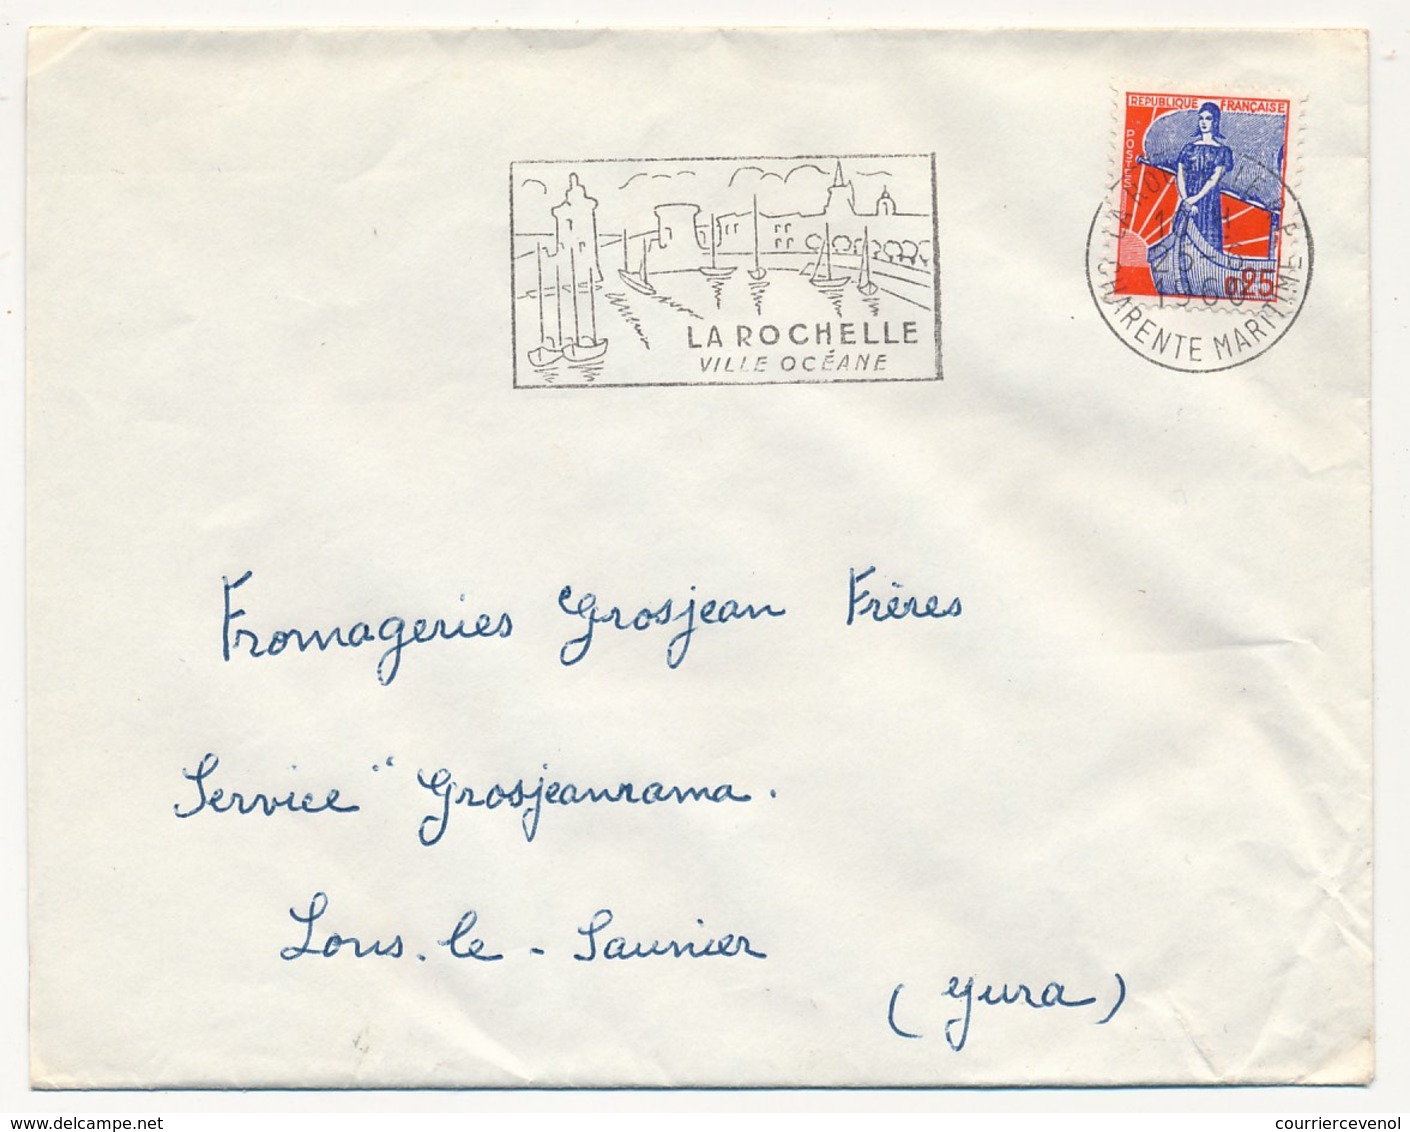 REPUBLIQUE FRANÇAISE
POSTES
0,25
CHARENTE MARITIME
LA ROCHELLE
VILLE OCÉANE
Fromageries Grosjean Frères
Service "Grosjeanrama.
Lons-le-Saunier
(Jura)
courriercevenol
www.delcampe.net